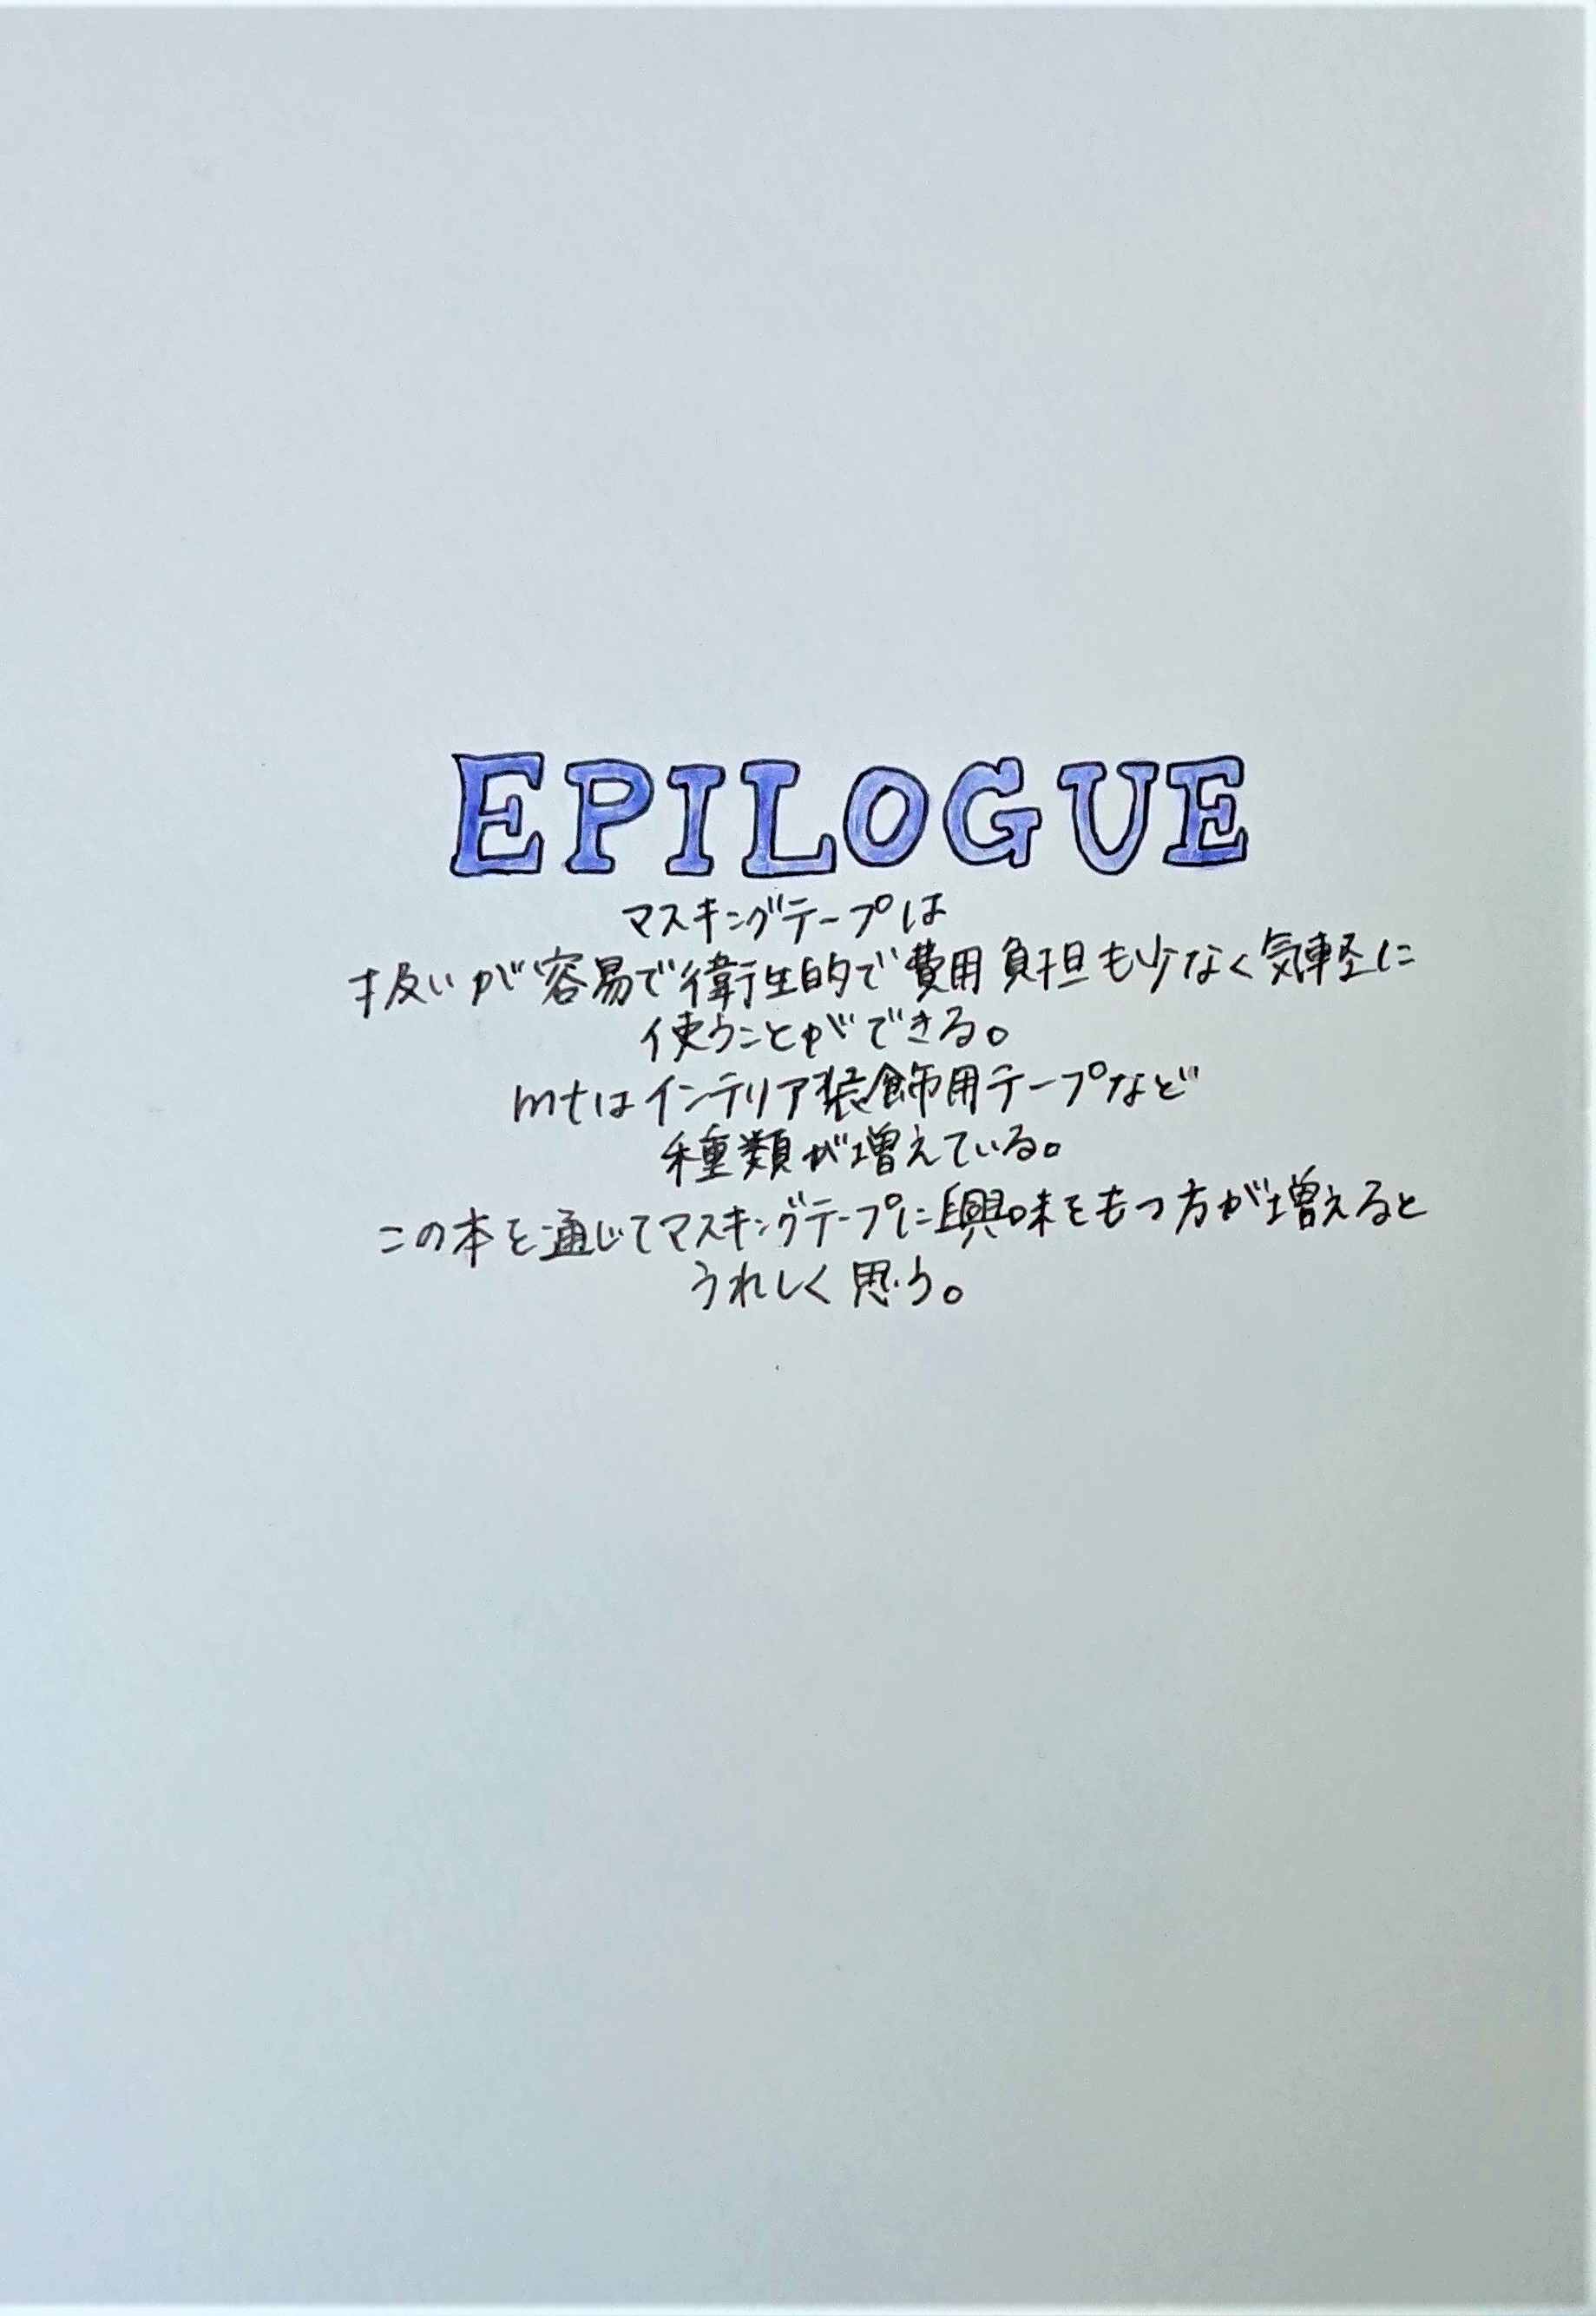 EPILOGUE
マスキングテープは
扱いが容易で衛生的で費用負担も少なく気軽に
使うことができる。
mtはインテリア装飾用テープなど
種類が増えている。
この本を通じてマスキングテープに興味をもつ方が増えると
うれしく思う。